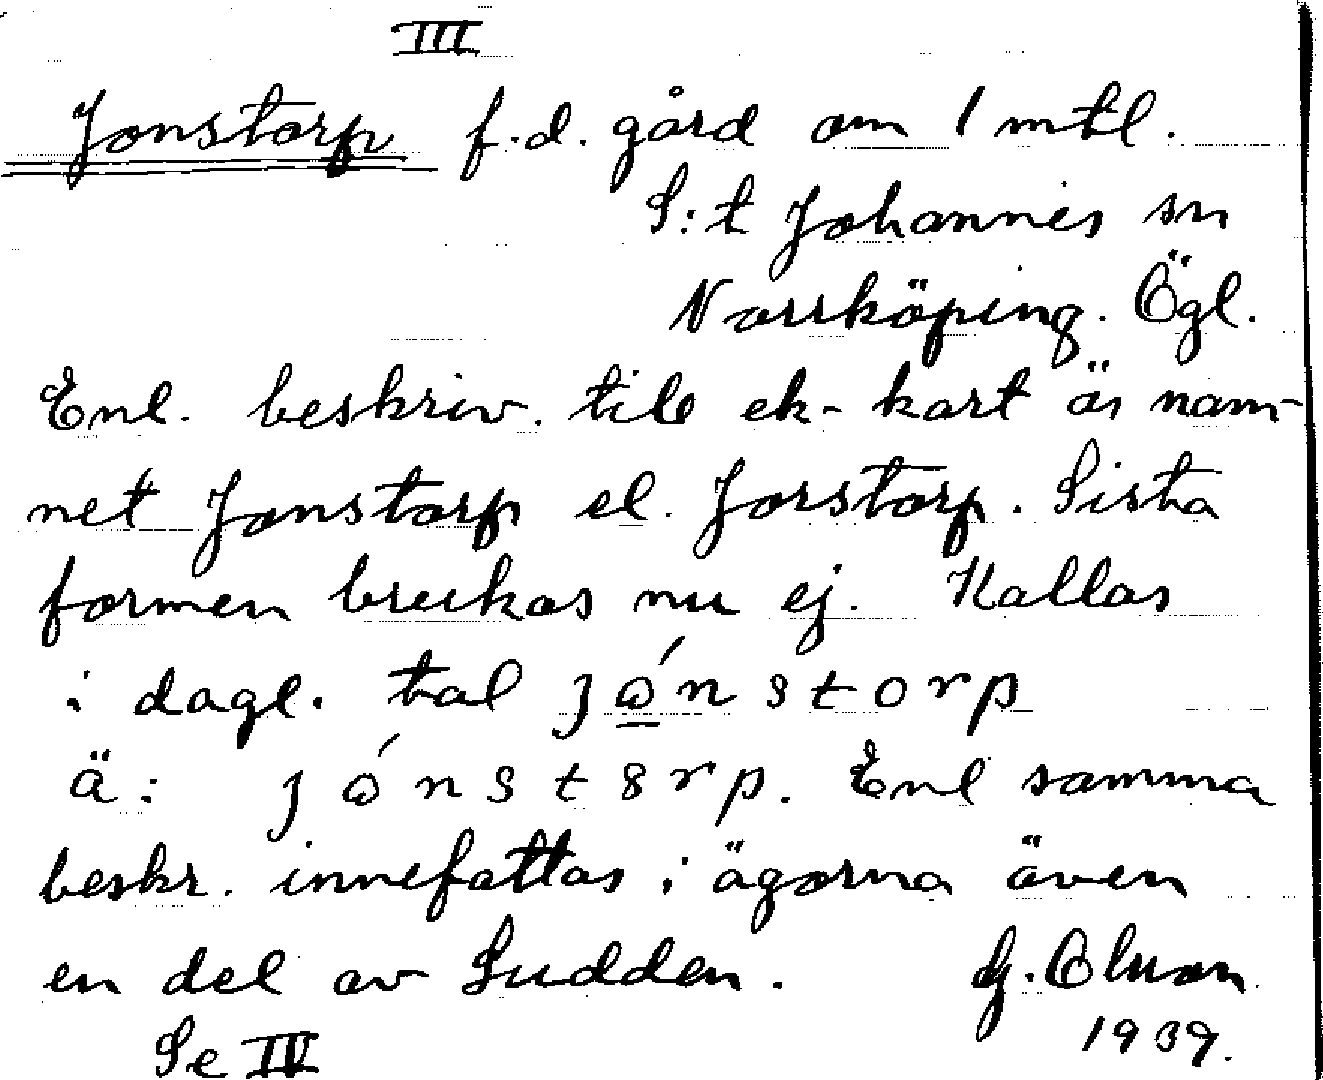 III
Jonstorp f.d. gård om 1 mtl.
S:t Johannes sn
Norrköping. Ögl.
Enl. beskriv. till ek-kart är nam-
net Jonstorp el. Jorstorp. Sista
formen brukas nu ej. Kallas
i dagl. tal
ä: Enl samma
beskr. innefattas i ägorna även
en del av Sudden. G. Olsson
1939.
Se IV